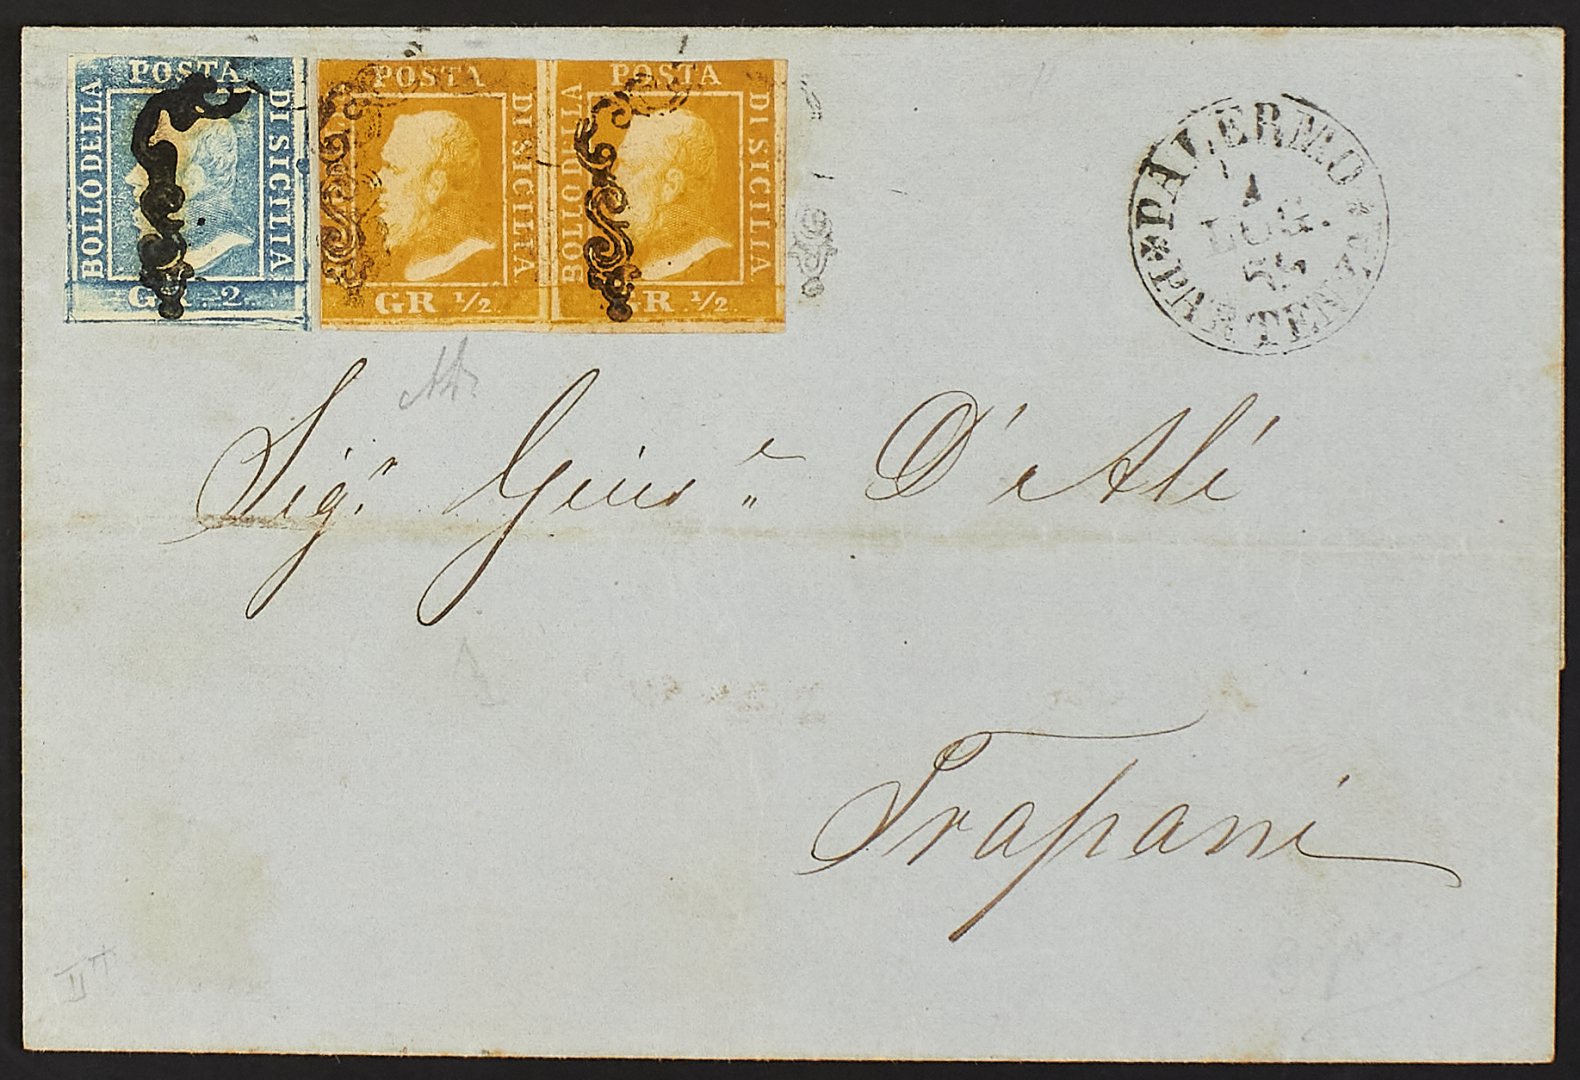 BOLLO DELLA POSTA DI SICILIA
GR. 2.
BOLLO DELLA POSTA DI SICILIA
GR ½.
BOLLO DELLA POSTA DI SICILIA
GR. ½.
PALERMO
LUG.
PARTENZA
Sigr Gius.e D'Alì
Trapani